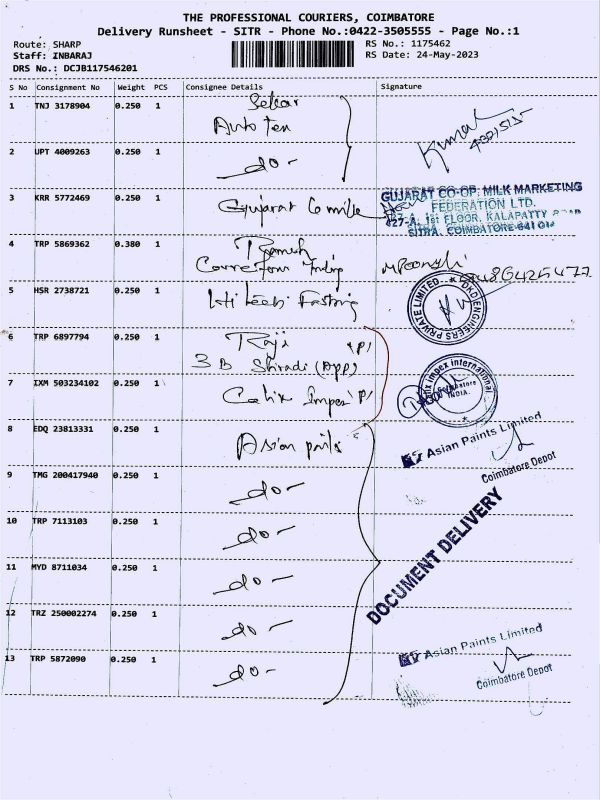 THE PROFESSIONAL COURIERS, COIMBATORE
Delivery Runsheet - SITR - Phone No.:0422-3505555 - Page No.:1
Route: SHARP
Staff: INBARAJ
DRS No.: DCJB117546201
RS No.: 1175462
RS Date: 24-May-2023
S No Consignment No Weight PCS Consignee Details Signature
1 TNJ 3178904 0.250 1 Sekar
Auto Tex
Kumar
2 UPT 4009263 0.250 1 do-
3 KRR 5772469 0.250 1 Gujarat Co milk
GUJARAT CO-OP. MILK MARKETING
FEDERATION LTD.
427-A, 1st FLOOR, KALAPATTY ROAD
SITRA, COIMBATORE-641 014
4 TRP 5869362 0.380 1 Ramesh
5 HSR 2738721 0.250 1
ENGINEERS PRIVATE LIMITED
6 TRP 6897794 0.250 1 Raji (P)
3 B Shiradi (App)
7 IXM 503234102 0.250 1 Calix Impex (P)
impex international
Coimbatore
INDIA.
8 EDQ 23813331 0.250 1 Asian paints
Asian Paints Limited
Coimbatore Depot
9 TMG 200417940 0.250 1 do-
DOCUMENT DELIVERY
10 TRP 7113103 0.250 1 do-
11 MYD 8711034 0.250 1 do-
12 TRZ 250002274 0.250 1 do-
13 TRP 5872090 0.250 1 do-
Asian Paints Limited
Coimbatore Depot